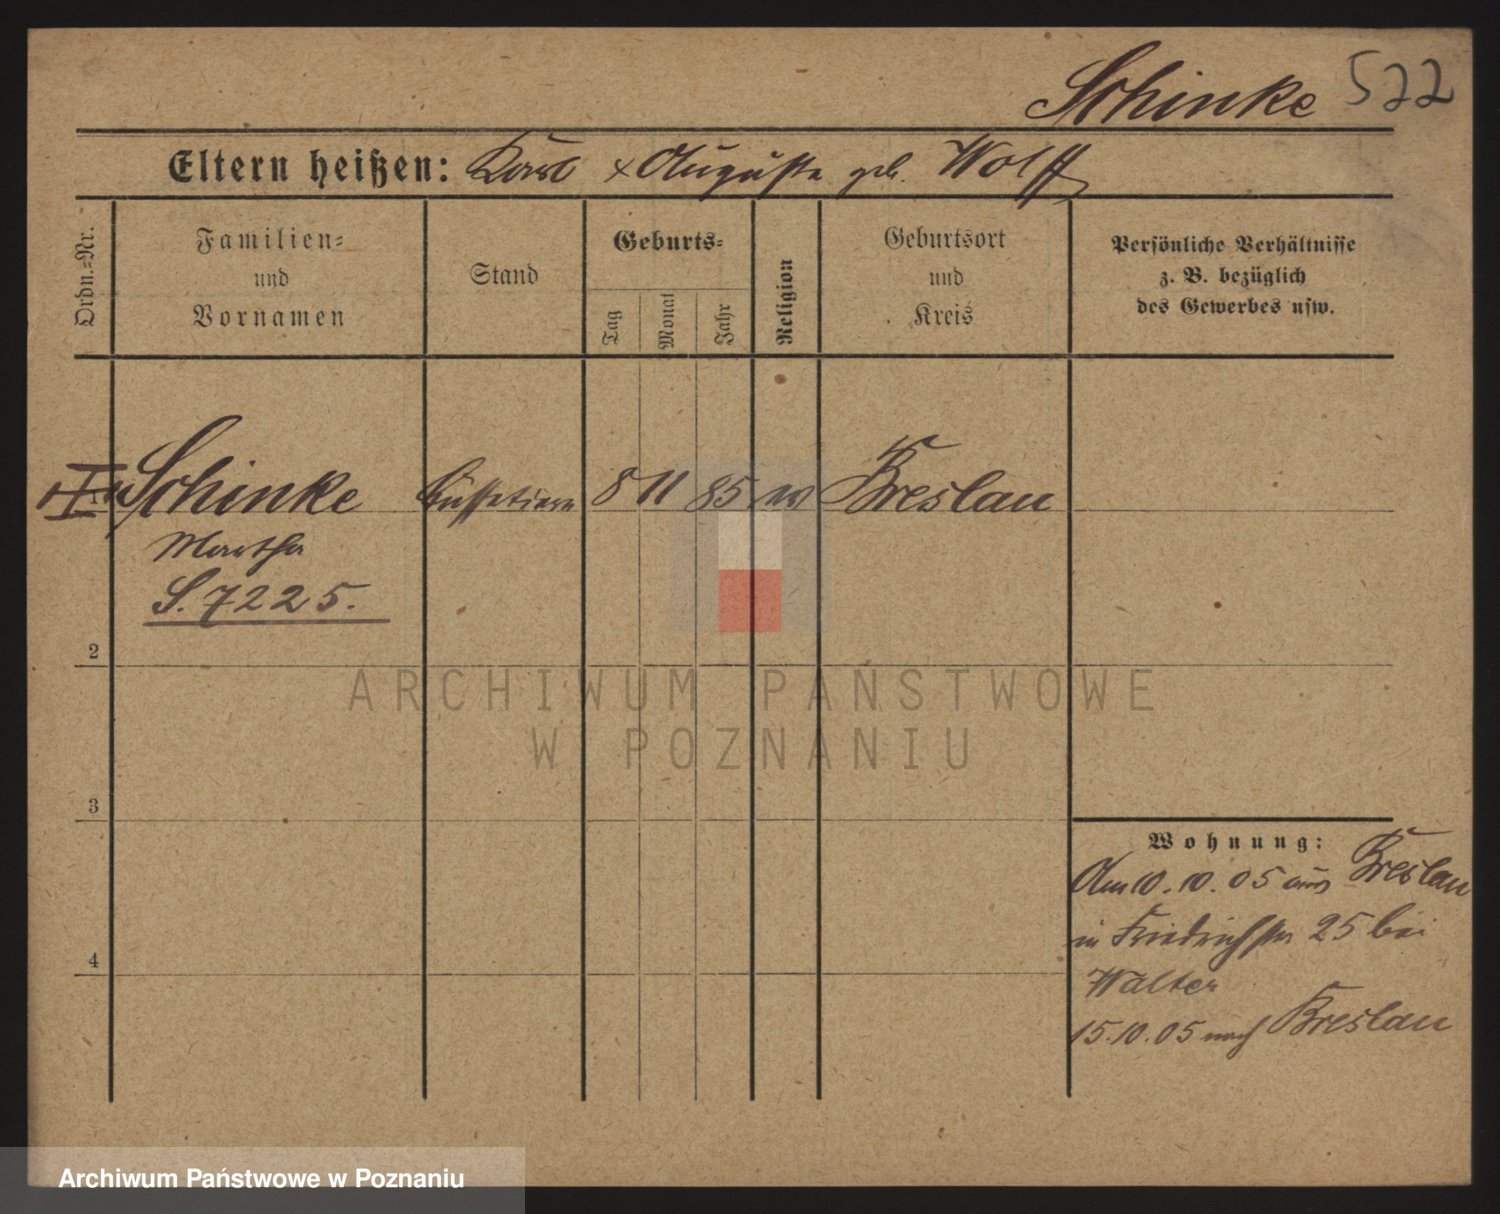 Schinke 522
Eltern heißen: Karl x Auguste geb. Wolff
Ordn.-Nr.
Familien-
und
Vornamen
Stand
Geburts-
Tag
Monat
Jahr
Religion
Geburtsort
und
Kreis
Persönliche Verhältnisse
z. B. bezüglich
des Gewerbes usw.
Schinke Büffetiere 8 11 85 ev Breslau
Martha
S. 7225.
2
3
4
ARCHIWUM PAŃSTWOWE
W POZNANIU
Wohnung:
Am 10.10.05 aus Breslau
in Friedrichstr 25 bei
Walter
15.10.05 nach Breslau
Archiwum Państwowe w Poznaniu